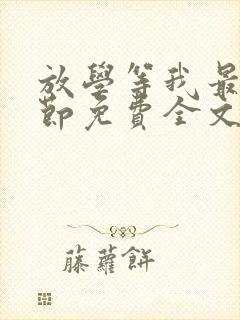 放學等我最
節免費全文
藤蘿餅